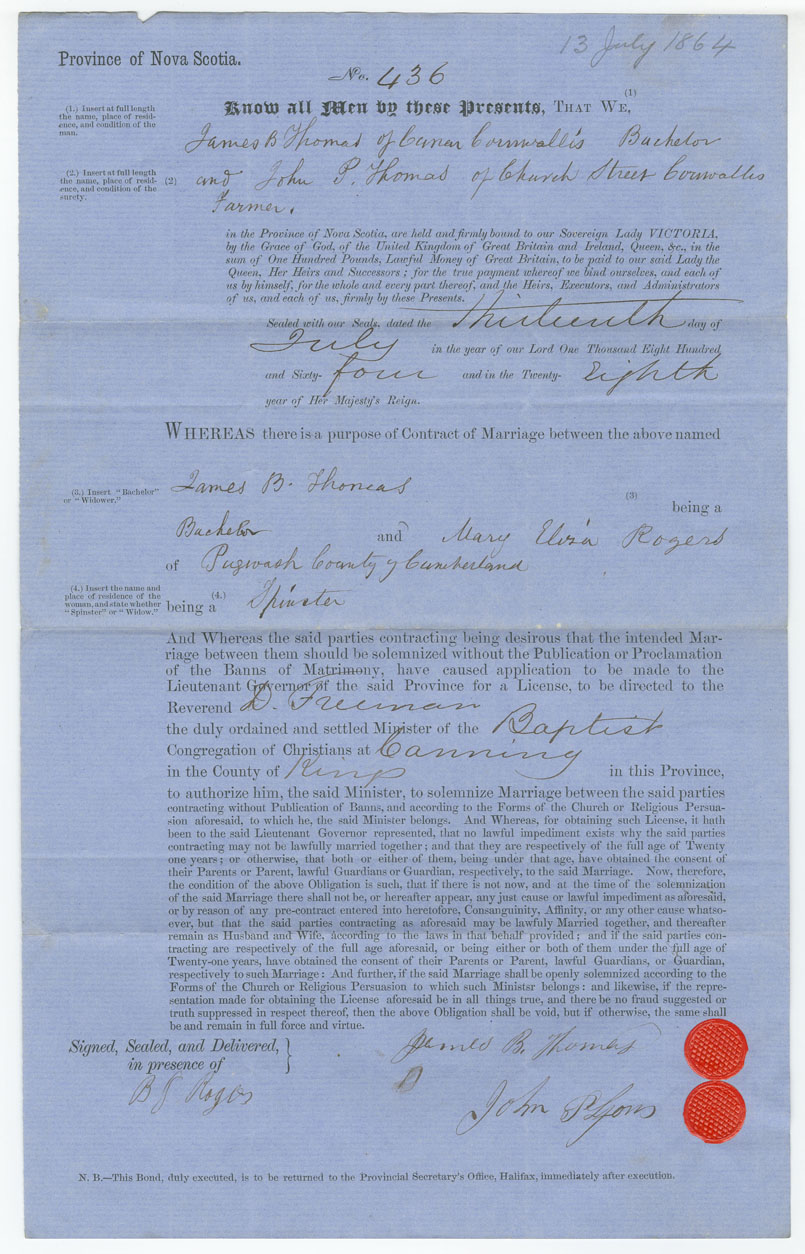 13 July 1864
Province of Nova Scotia.
No. 436
(1)
Know all Men by these Presents, THAT WE,
(1.) Insert at full length
the name, place of resid-
ence, and condition of the
man.
James B Thomas of Canar Cornwallis Bachelor
(2.) Insert at full length
the name, place of resid-
ence, and condition of the
surety.
(2) and John P. Thomas of Church Street Cornwallis
Farmer.
in the Province of Nova Scotia, are held and firmly bound to our Sovereign Lady VICTORIA,
by the Grace of God, of the United Kingdom of Great Britain and Ireland, Queen, &c., in the
sum of One Hundred Pounds, Lawful Money of Great Britain, to be paid to our said Lady the
Queen, Her Heirs and Successors; for the true payment whereof we bind ourselves, and each of
us by himself, for the whole and every part thereof, and the Heirs, Executors, and Administrators
of us, and each of us, firmly by these Presents.
Sealed with our Seals, dated the Thirteenth day of
July in the year of our Lord One Thousand Eight Hundred
and Sixty- four and in the Twenty- Eighth
year of Her Majesty's Reign.
WHEREAS there is a purpose of Contract of Marriage between the above named
(3.) Insert "Bachelor"
or "Widower."
James B. Thomas
(3)
being a
Bachelor and Mary Eliza Rogers
of Pugwash County of Cumberland
(4.) Insert the name and
place of residence of the
woman, and state whether
"Spinster" or "Widow."
being a (4.) Spinster
And Whereas the said parties contracting being desirous that the intended Mar-
riage between them should be solemnized without the Publication or Proclamation
of the Banns of Matrimony, have caused application to be made to the
Lieutenant Governor of the said Province for a License, to be directed to the
Reverend D. Freeman
the duly ordained and settled Minister of the Baptist
Congregation of Christians at Canning
in the County of Kings in this Province,
to authorize him, the said Minister, to solemnize Marriage between the said parties
contracting without Publication of Banns, and according to the Forms of the Church or Religious Persua-
sion aforesaid, to which he, the said Minister belongs. And Whereas, for obtaining such License, it hath
been to the said Lieutenant Governor represented, that no lawful impediment exists why the said parties
contracting may not be lawfully married together; and that they are respectively of the full age of Twenty
one years; or otherwise, that both or either of them, being under that age, have obtained the consent of
their Parents or Parent, lawful Guardians or Guardian, respectively, to the said Marriage. Now, therefore,
the condition of the above Obligation is such, that if there is not now, and at the time of the solemnization
of the said Marriage there shall not be, or hereafter appear, any just cause or lawful impediment as aforesaid,
or by reason of any pre-contract entered into heretofore, Consanguinity, Affinity, or any other cause whatso-
ever, but that the said parties contracting as aforesaid may be lawfuly Married together, and thereafter
remain as Husband and Wife, according to the laws in that behalf provided; and if the said parties con-
tracting are respectively of the full age aforesaid, or being either or both of them under the full age of
Twenty-one years, have obtained the consent of their Parents or Parent, lawful Guardians, or Guardian,
respectively to such Marriage: And further, if the said Marriage shall be openly solemnized according to the
Forms of the Church or Religious Persuasion to which such Ministsr belongs: and likewise, if the repre-
sentation made for obtaining the License aforesaid be in all things true, and there be no fraud suggested or
truth suppressed in respect thereof, then the above Obligation shall be void, but if otherwise, the same shall
be and remain in full force and virtue.
Signed, Sealed, and Delivered,
in presence of
James B. Thomas
B J Rogers
John P Lyons
N. B.—This Bond, duly executed, is to be returned to the Provincial Secretary's Office, Halifax, immediately after execution.